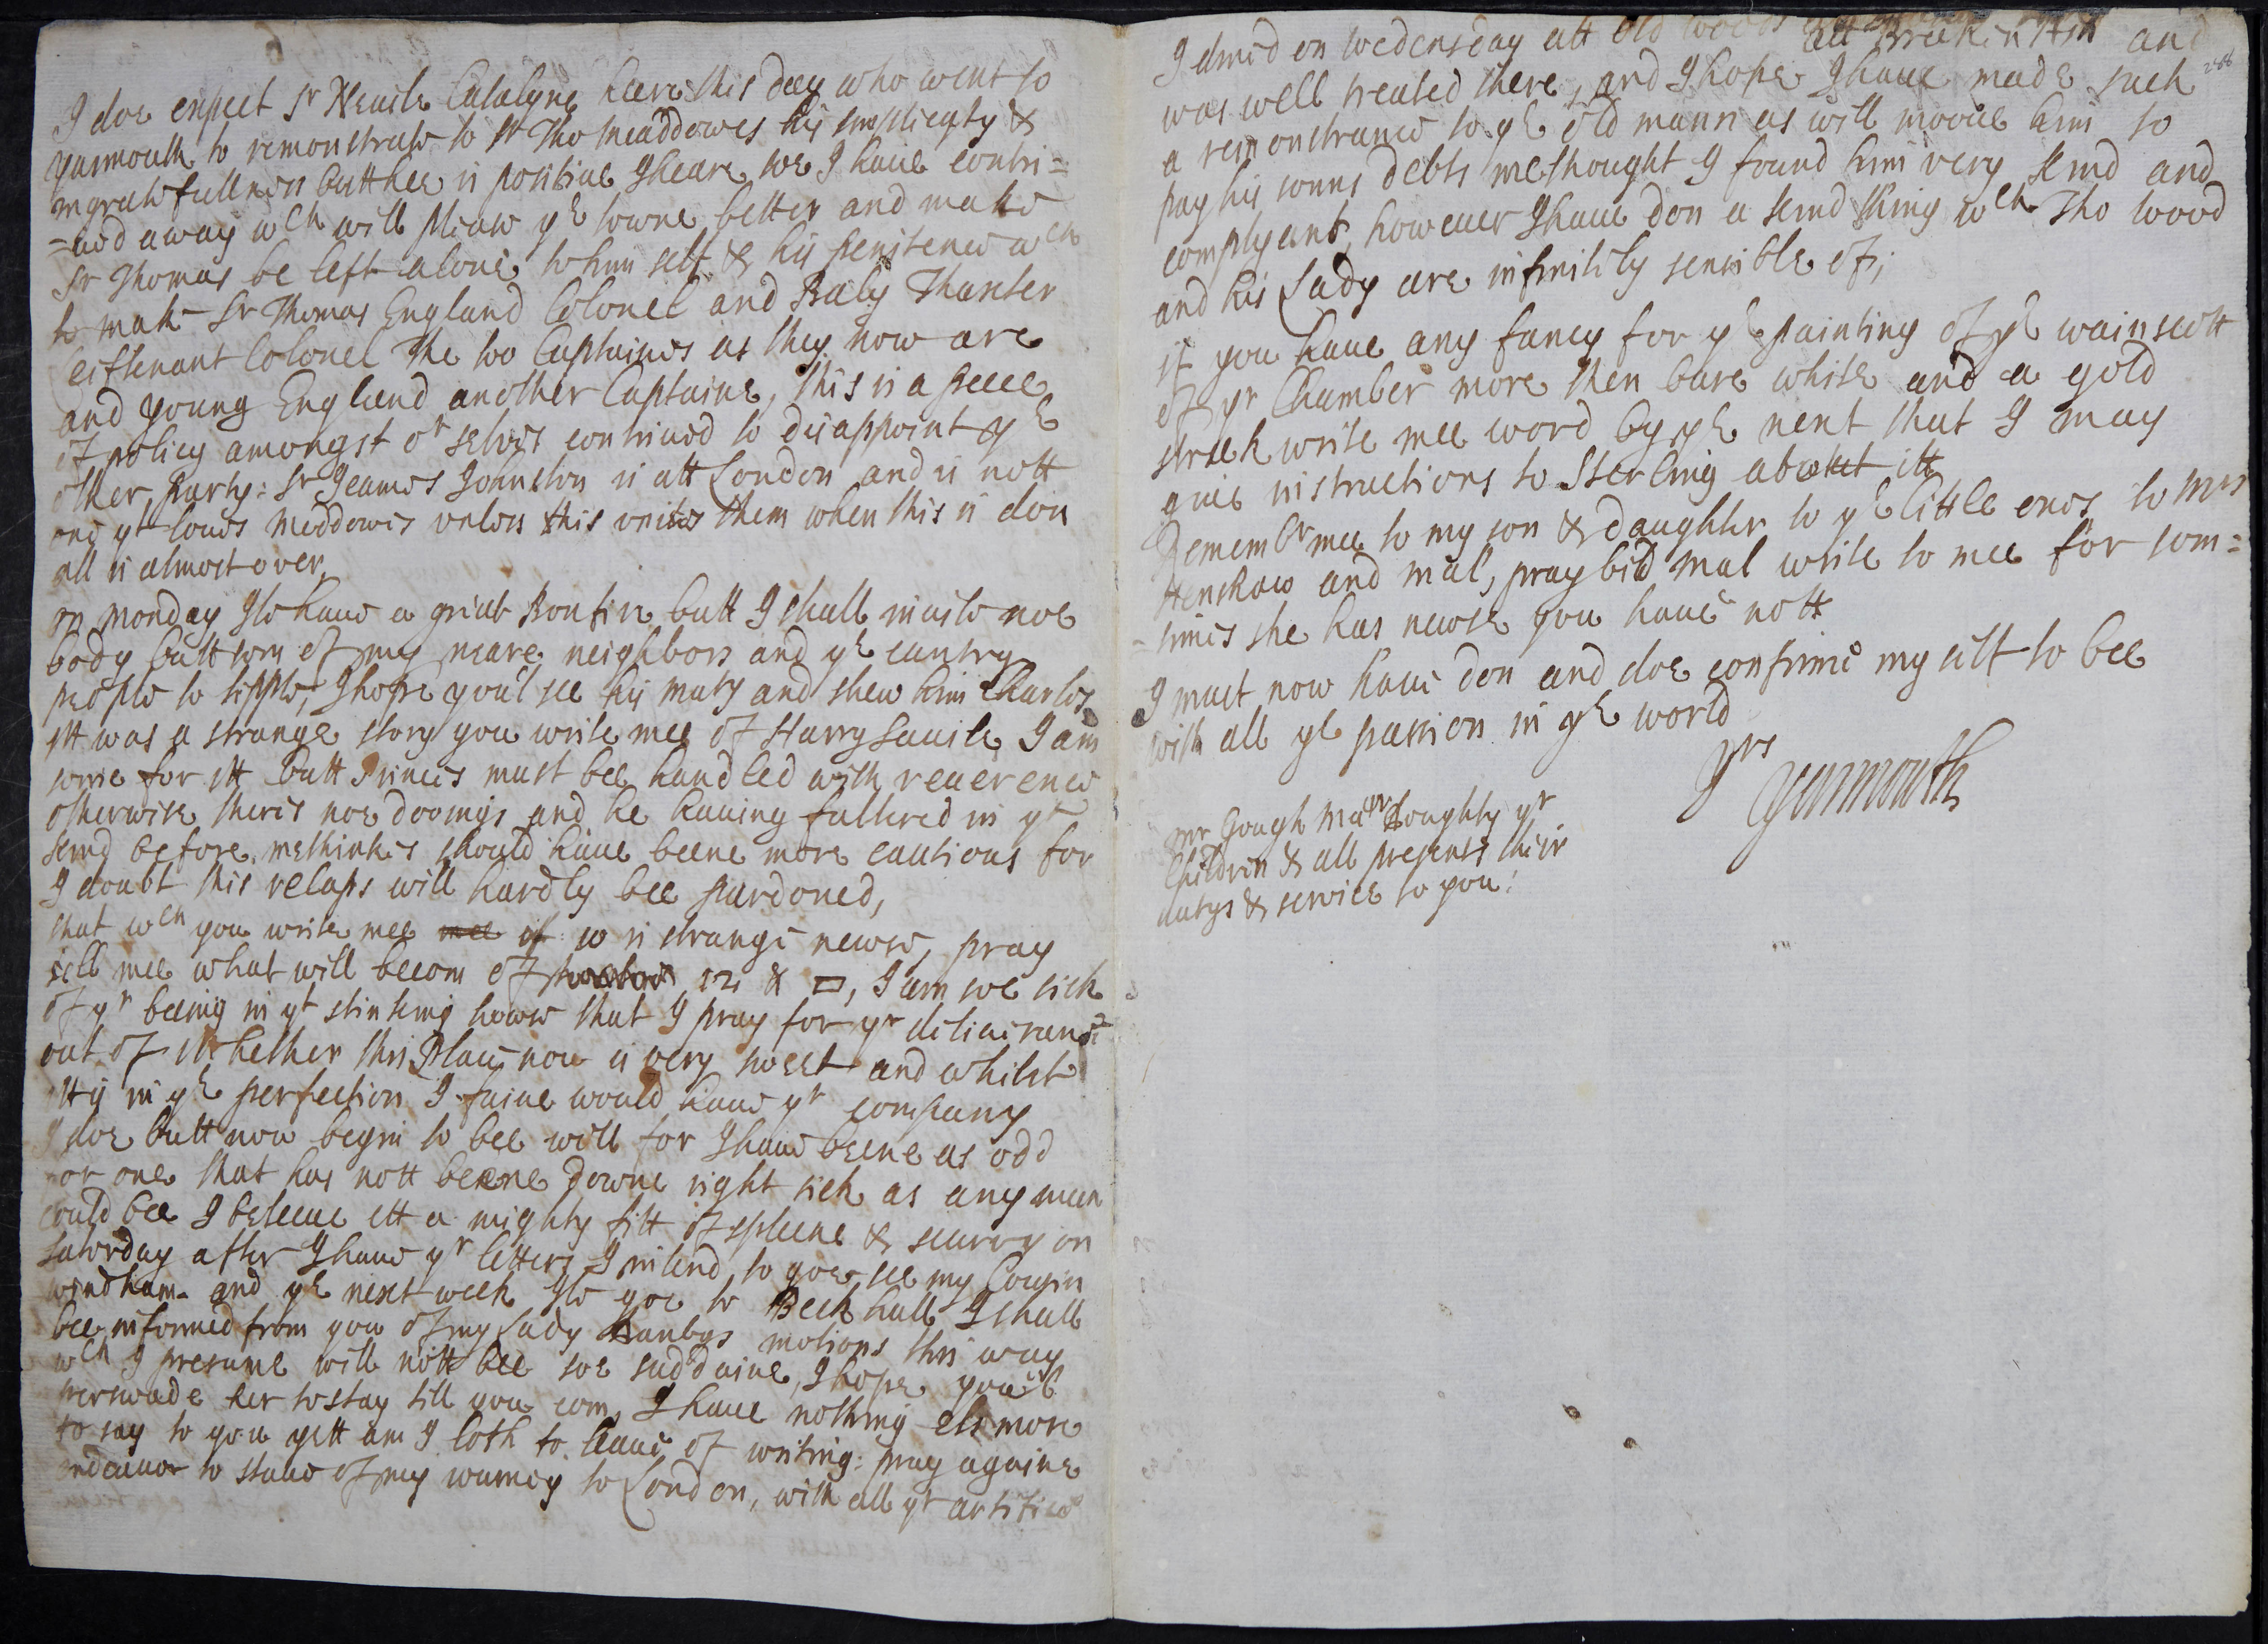 I doe expect Sr Nevile Catalyne heere this day who went to
yarmouth to remonstrate to Sr Tho meaddowes his simplicaty &
ingratefullness butt hee is positive I heare soe I haue contri=
=ued a way wch will please ye towne better and make
Sr Thomas be left alone to him self & his penitence wch
to make Sr Thomas England Colonel and Raby Thaxter
leiftenant Colonel The too Captaines as they now are
and young England another Captaine, this is a peece
of policy amongst or selves contriued to disappoint ye
other party: Sr Jeames Johnston is att London and is nott
one yt loues meddowes unless this unites them when this is don
all is almost over
on monday Ile haue a great Bonfire butt I shall inuite noe
body butt som of my neare neighbors and ye cuntry
people to tipple, I hope you'l see his maty and shew him Charles
itt was a strange story you write mee of Harry Sauile I am
sorrie for itt butt Princes must bee handled with reuerence
otherwise theres noe dooings and he hauing faltered in yt
kind before methinkes should haue beene more cautious for
I doubt this relaps will hardly bee pardoned,
that wch you write mee mee of 10 is strange newse, pray
tell mee what will becom of 12 & □, I am soe sick
of yr beeing in yt stinking howse that I pray for yr deliuerance
out of itt hether this Place now is very sweet and whilst
itt is in ye perfection I faine would haue yr company
I doe butt now begin to bee well for I haue beene as odd
for one that has nott beene downe right sick as any man
could bee I beleeue itt a mighty fitt of spleene & scurvy on
Saturday after I haue yr letters I intend to goe see my Cousin
Windham and ye next week Ile goe to Beck hall I shall
bee informed from you of my Lady Danbys motions this way
wch I presume will nott bee soe suddaine, I hope you'l
perswade her to stay till you com, I haue nothing els more
to say to you yett am I loth to leaue of writing: pray againe
endeauor to staue of my journey to London, with all yr artifice
I dined on wedensday att old woods att Breckin Ash and
was well treated there, and I hope I haue made such
a remonstrance to ye old mann as will mooue him to
pay his sonns debts methought I found him very kind and
complyant, however I haue don a kind thing wch Tho wood
and his Lady are infinitly sensible of;
if you haue any fancy for ye painting of ye wainscott
of yr Chamber more then bare white and a gold
streek write mee word by ye next that I may
giue instructions to Sterling about itt
Remembr mee to my son & daughter to ye little ones to Mrs
Henshaw and mal, pray bid mal write to mee for som=
=times she has newse you haue nott
I must now haue don and doe confirme my self to bee
with all ye passion in ye world
Yrs Yarmouth
mr Gough Doughty yr
Children & all presents their
dutys & service to you: